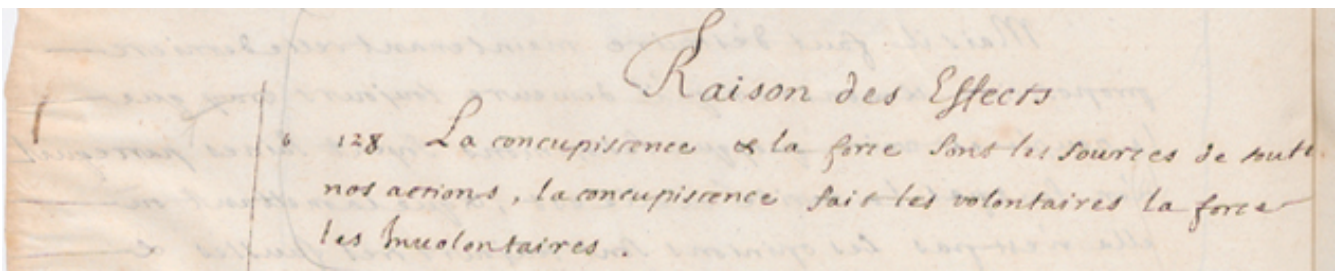 Raison des Effects
6 128 La concupiscence & la force sont les sources de toutes
nos actions, la concupiscence fait les volontaires la force
les Inuolontaires.